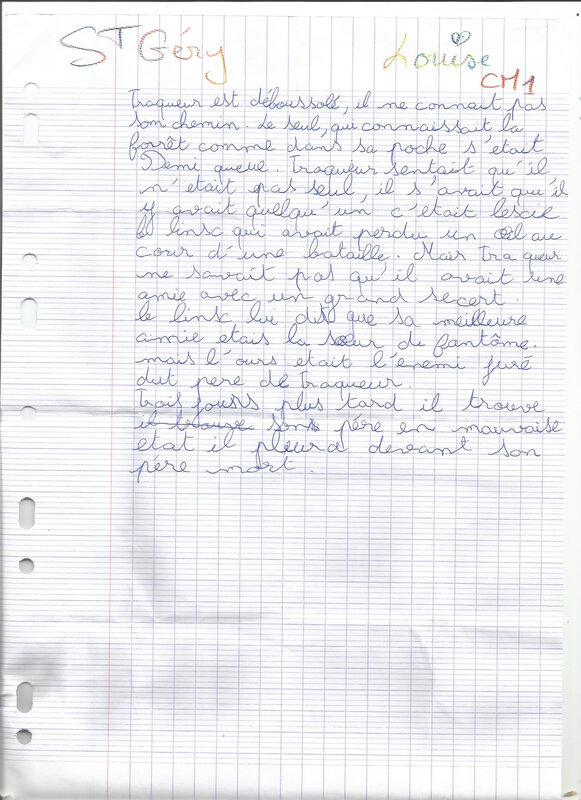 ST Géry
Louise
CM1
Traqueur est déboussolé, il ne connait pas
son chemin. Le seul, qui connaissait la
forrêt comme dans sa poche s'était
Demi queue. Traqueur sentait qu'il
n'était pas seul, il s'avait qu'il
y avait quelqu'un c'était
linsc qui avait perdu un œil au
cour d'une bataille. Mais Traqueur
ne savait pas qu'il avait une
amie avec un grand secert.
le linsc lui dis que sa meilleure
amie etais la sœur de fantôme.
mais l'ours etait l'enemi juré
dut pere de Traqueur.
Trais jours plus tard il trouve
il trouve son père en mauvaise
etat il pleura devant son
père mort.